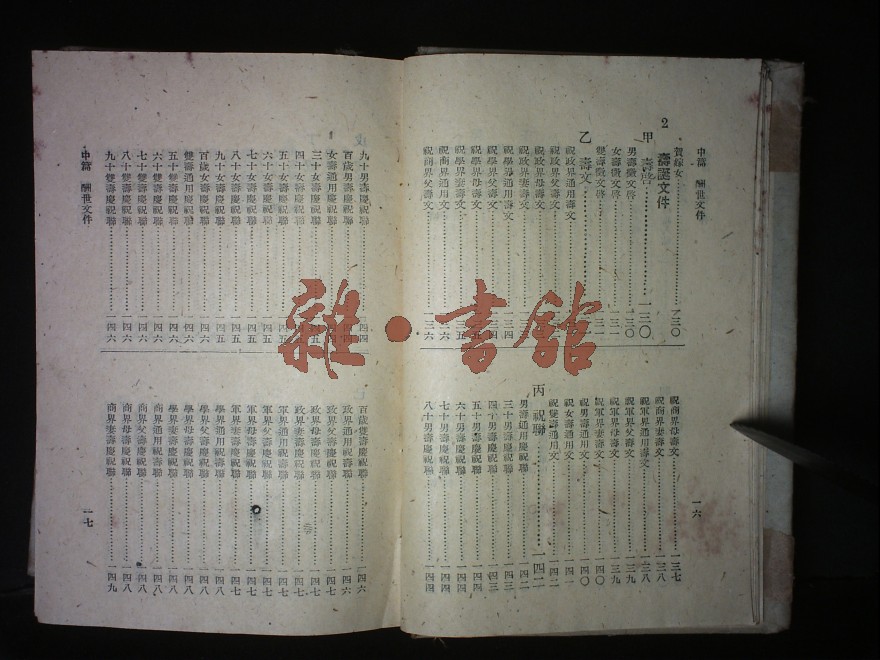 中篇　酬世文件
賀嫁女……一三〇
2　壽誕文件
甲　壽啓……一三〇
男壽徵文啓……一三〇
女壽徵文啓……一三一
雙壽徵文啓……一三
乙　壽文……
祝政界通用壽文
祝政界父壽文
祝政界母壽文
祝政界妻壽文
祝學界通用壽文……一三四
祝學界父壽文
祝學界母壽文……一三五
祝學界妻壽文……一三五
祝商界通用壽文……一三六
祝商界父壽文……一三六
祝商界母壽文……一三七
祝商界妻壽文……一三七
祝軍界通用壽文……一三八
祝軍界父壽文……一三八
祝軍界母壽文……一三九
祝軍界妻壽文……一三九
祝男壽通用文……一四〇
祝女壽通用文……一四一
祝雙壽通用文……一四二
丙　祝聯……一四二
男壽通用慶祝聯……一四二
三十男壽慶祝聯……一四三
四十男壽慶祝聯……一四三
五十男壽慶祝聯……一四四
六十男壽慶祝聯……一四四
七十男壽慶祝聯……一四四
八十男壽慶祝聯……一四四
一六
九十男壽慶祝聯……一四四
百歲男壽慶祝聯……一四四
女壽通用慶祝聯
三十女壽慶祝聯
四十女壽慶祝聯
五十女壽慶祝聯
六十女壽慶祝聯……一四五
七十女壽慶祝聯……一四五
八十女壽慶祝聯……一四五
九十女壽慶祝聯……一四五
百歲女壽慶祝聯……一四六
雙壽通用慶祝聯……一四六
五十雙壽慶祝聯……一四六
六十雙壽慶祝聯……一四六
七十雙壽慶祝聯……一四六
八十雙壽慶祝聯……一四六
九十雙壽慶祝聯……一四六
百歲雙壽慶祝聯……一四六
政界通用祝壽聯……一四六
政界父壽慶祝聯……一四七
政界母壽慶祝聯……一四七
政界妻壽慶祝聯……一四七
軍界通用祝壽聯……一四七
軍界父壽慶祝聯……一四七
軍界母壽慶祝聯……一四七
軍界妻壽慶祝聯……一四七
學界通用祝壽聯……一四八
學界父壽慶祝聯……一四八
學界母壽慶祝聯……一四八
學界妻壽慶祝聯……一四八
商界通用祝壽聯……一四八
商界父壽慶祝聯……一四八
商界母壽慶祝聯……一四八
商界妻壽慶祝聯……一四九
中篇　酬世文件
一七
雜·書館